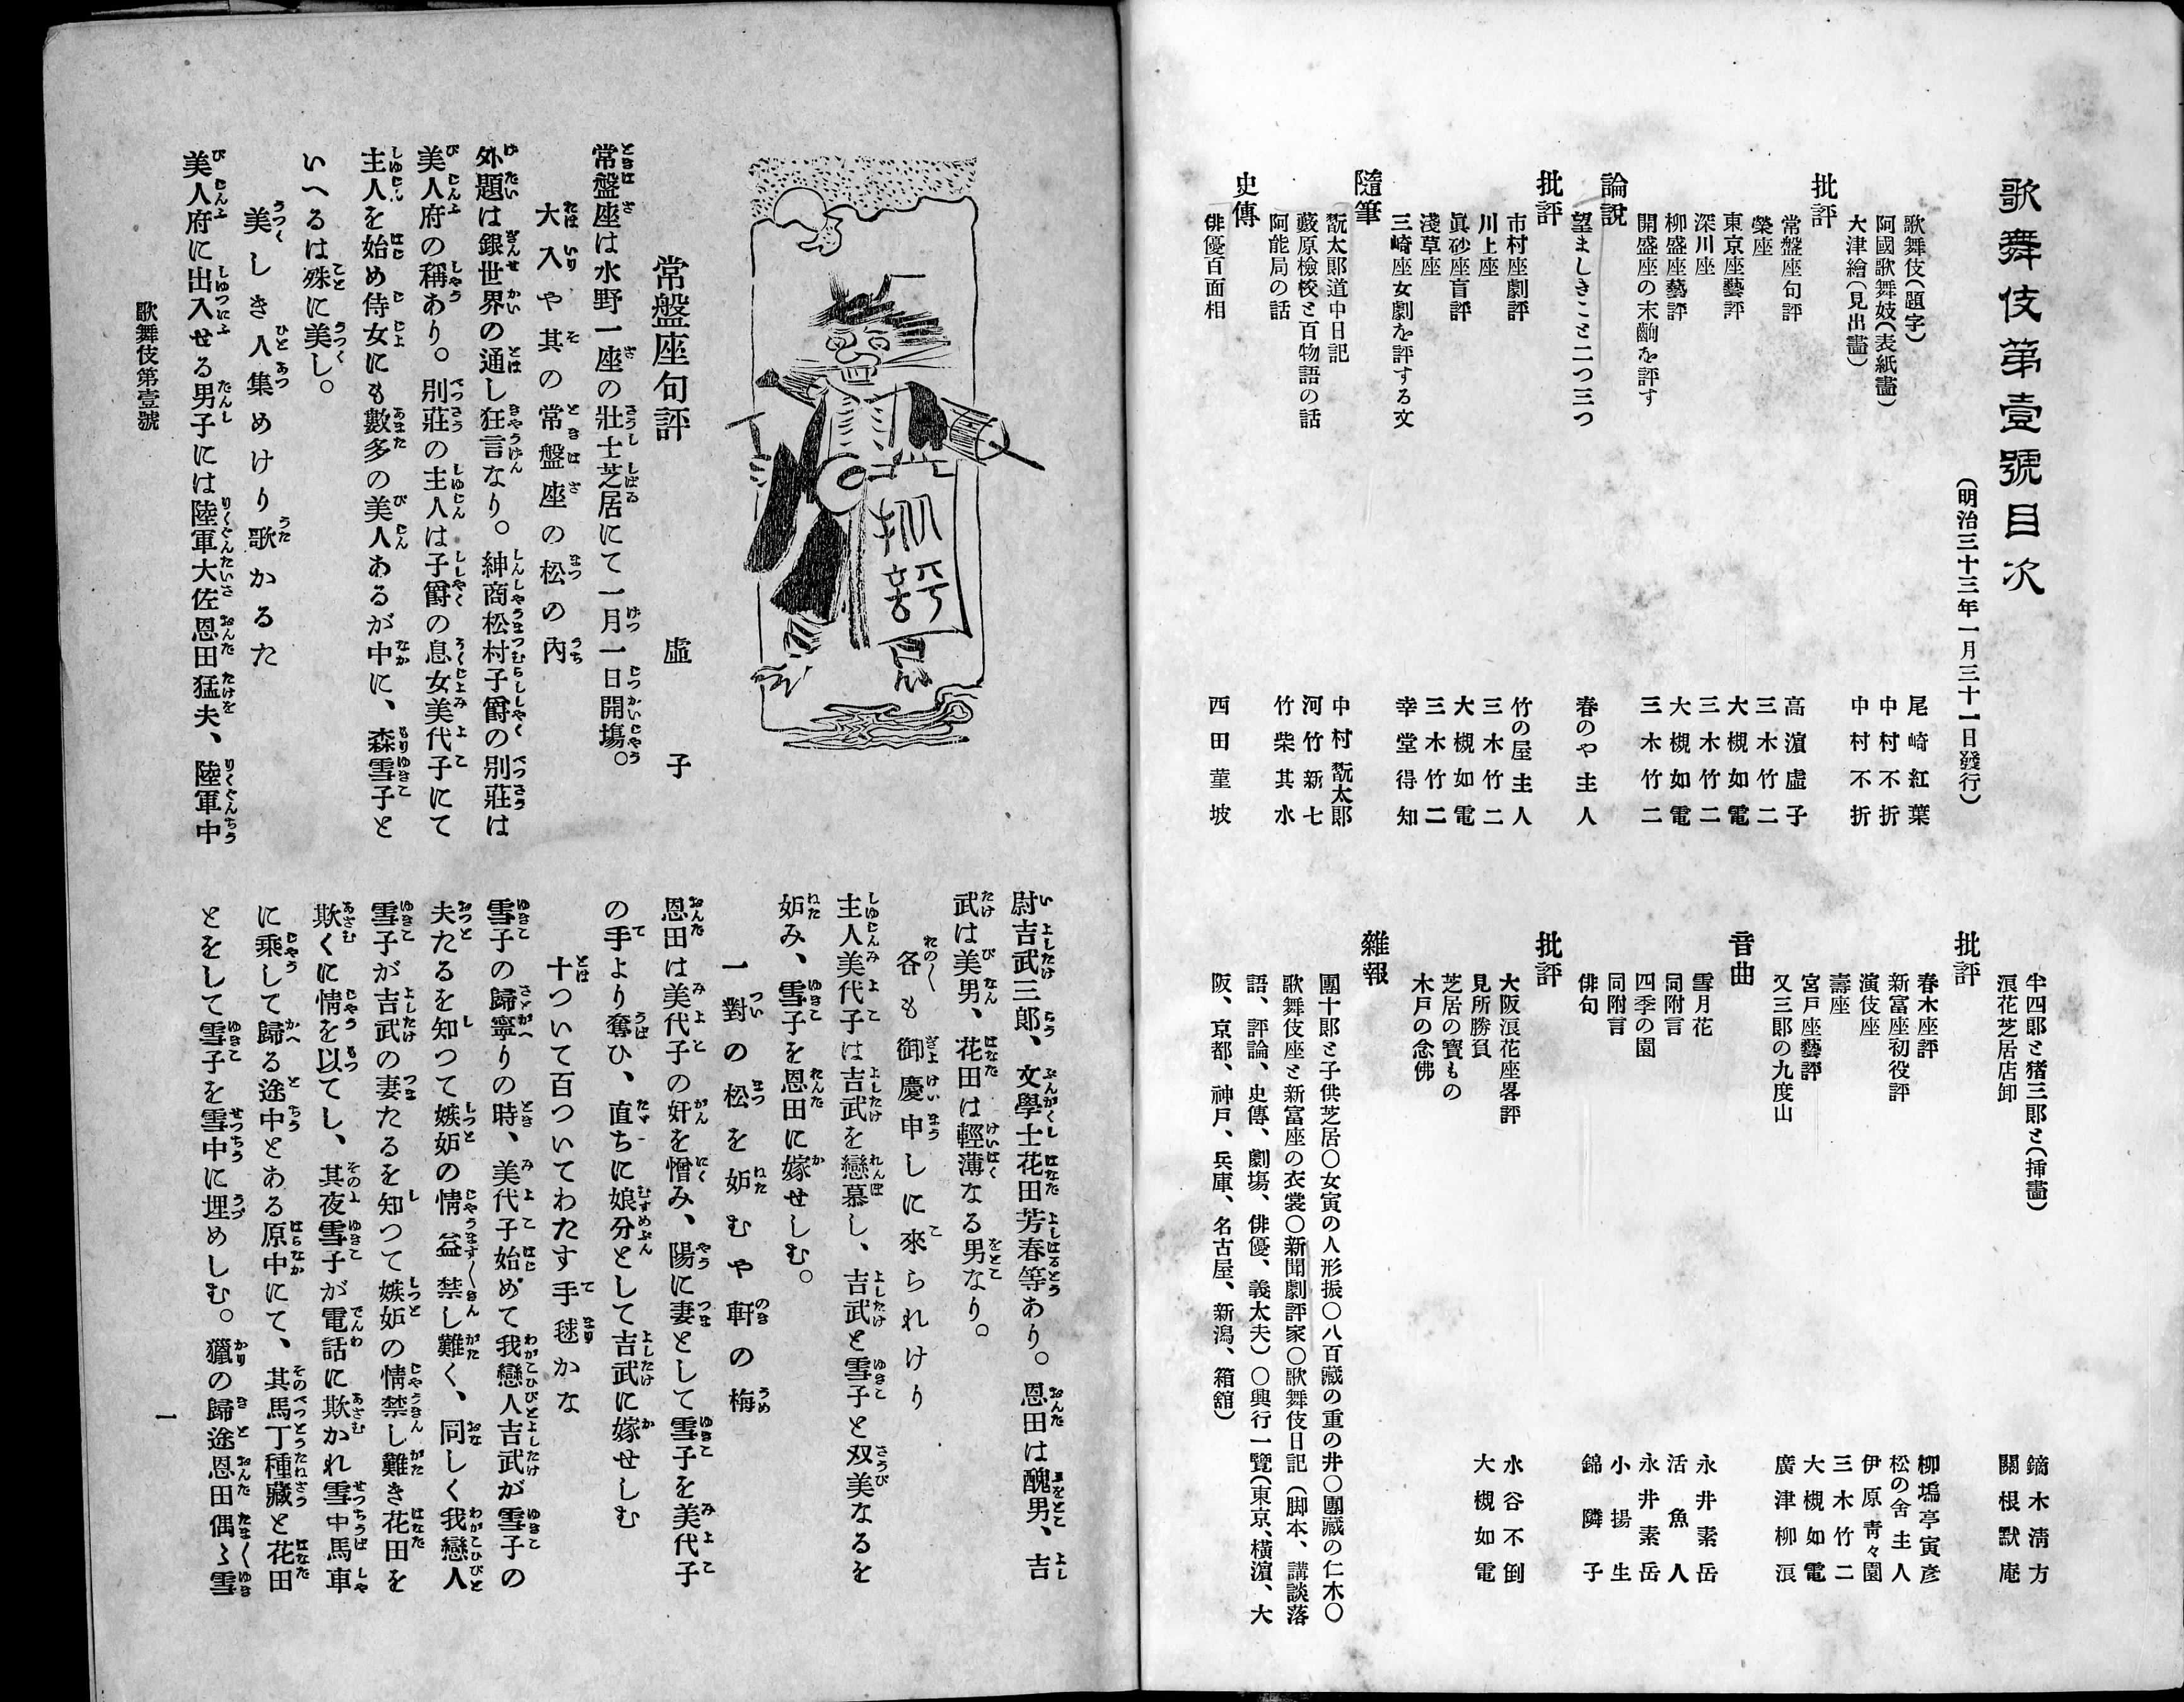 歌舞伎第壹號目次
（明治三十三年一月三十一日發行）
歌舞伎（題字）　尾崎紅葉
阿國歌舞妓（表紙畵）　中村不折
大津繪（見出畵）　中村不折
批評
常盤座句評　高濵虛子
榮座　三木竹二
東京座藝評　大槻如電
深川座　三木竹二
柳盛座藝評　大槻如電
開盛座の末齣を評す　三木竹二
論說
望ましきこと二つ三つ　春のや主人
批評
市村座劇評　竹の屋主人
川上座　三木竹二
眞砂座盲評　大槻如電
淺草座　三木竹二
三崎座女劇を評する文　幸堂得知
隨筆
翫太郎道中日記　中村翫太郎
藪原檢校と百物語の話　河竹新七
阿能局の話　竹柴其水
史傳
俳優百面相　西田菫坡
半四郎と猪三郎と（挿畵）　鏑木淸方
浪花芝居店卸　關根默庵
批評
春木座評　柳塢亭寅彥
新富座初役評　松の舍主人
演伎座　伊原靑々園
壽座　三木竹二
宮戸座藝評　大槻如電
又三郎の九度山　廣津柳浪
音曲
雪月花　永井素岳
同附言　活魚人
四季の園　永井素岳
同附言　小揚生
俳句　錦隣子
批評
大阪浪花座畧評　水谷不倒
見所勝負　大槻如電
芝居の寳もの
木戸の念佛
雜報
團十郎と子供芝居〇女寅の人形振〇八百藏の重の井〇團藏の仁木〇
歌舞伎座と新富座の衣裳〇新聞劇評家〇歌舞伎日記（脚本、講談落
語、評論、史傳、劇塲、俳優、義太夫）〇興行一覽（東京、橫濵、大
阪、京都、神戸、兵庫、名古屋、新潟、箱舘）
批評
常盤座句評　虛子
常盤座は水野一座の壯士芝居にて一月一日開塲。
大入や其の常盤座の松の內
外題は銀世界の通し狂言なり。紳商松村子爵の別莊は
美人府の稱あり。別莊の主人は子爵の息女美代子にて
主人を始め侍女にも數多の美人あるが中に、森雪子と
いへるは殊に美し。
美しき人集めけり歌かるた
美人府に出入せる男子には陸軍大佐恩田猛夫、陸軍中
尉吉武三郎、文學士花田芳春等あり。恩田は醜男、吉
武は美男、花田は輕薄なる男なり。
各〱も御慶申しに來られけり
主人美代子は吉武を戀慕し、吉武と雪子と双美なるを
妬み、雪子を恩田に嫁せしむ。
一對の松を妬むや軒の梅
恩田は美代子の奸を憎み、陽に妻として雪子を美代子
の手より奪ひ、直ちに娘分として吉武に嫁せしむ
十ついて百ついてわたす手毬かな
雪子の歸寧りの時、美代子始めて我戀人吉武が雪子の
夫たるを知つて嫉妬の情益禁し難く、同しく我戀人
雪子が吉武の妻たるを知つて嫉妬の情禁し難き花田を
欺くに情を以てし、其夜雪子が電話に欺かれ雪中馬車
に乘して歸る途中とある原中にて、其馬丁種藏と花田
とをして雪子を雪中に埋めしむ。獵の歸途恩田偶〻雪
歌舞伎第壹號
一